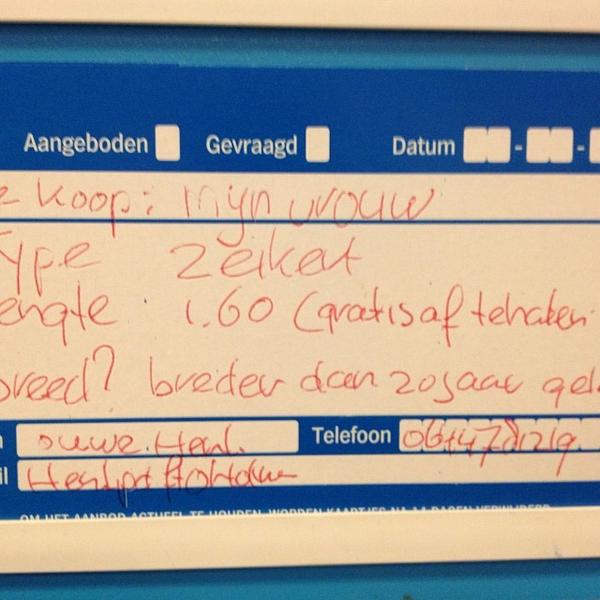 Aangeboden Gevraagd Datum - -
e koop: mijn vrouw
ype zeikert
engte 1.60 (gratis af tehalen
breed? breder dan 20 jaar gel
ouwe. Henk. Telefoon
OM HET AANBOD ACTUEEL TE HOUDEN, WORDEN KAARTJES NA 14 DAGEN VERWIJDERD